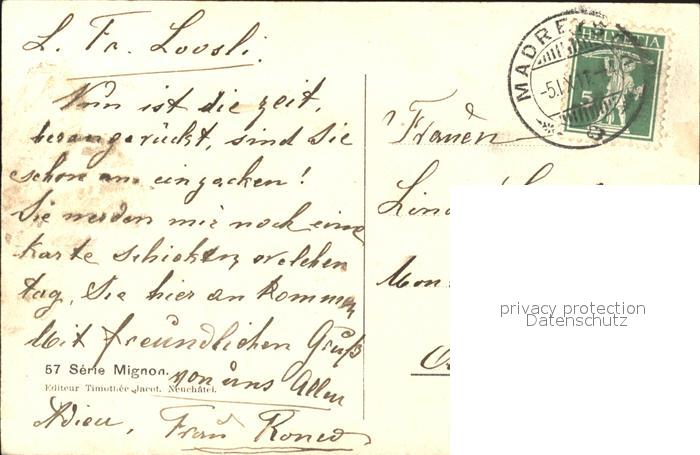 L. Fr. Loosli.
Nun ist die zeit,
herangerückt, sind Sie
schon am eingacken!
Sie werden mir noch eine
karte schicken, welchen
tag, Sie hier an kommen
Mit freundlichen Gruß
von uns Allen
Adieu, Frau
57 Série Mignon.
Editeur Timothée Jacot. Neuchâtel.
MADRE
HELVETIA
5
Frauen
privacy protection
Datenschutz